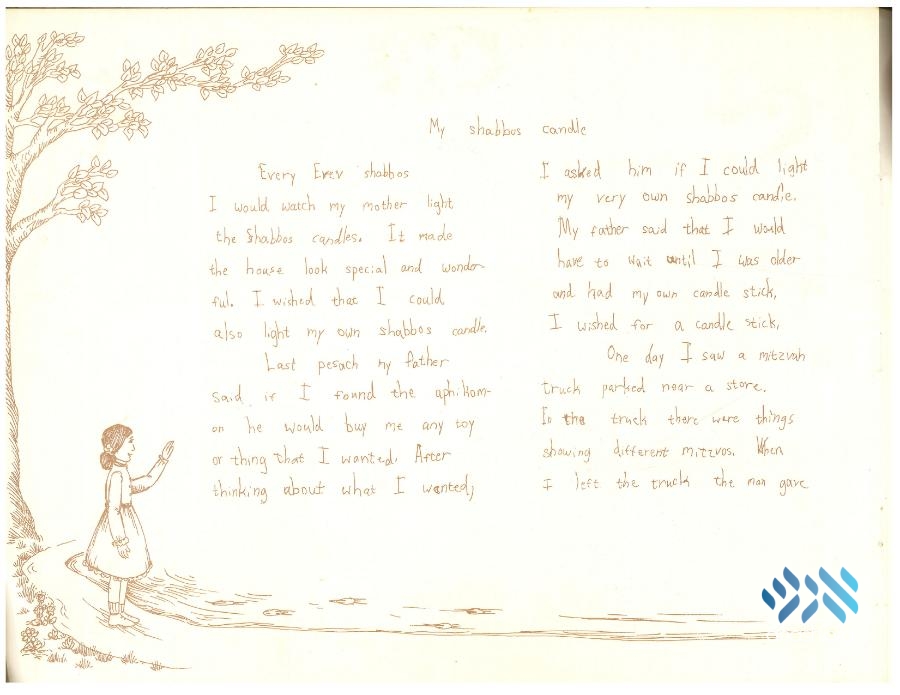 My shabbos candle
Every Erev shabbos
I would watch my mother light
the shabbos candles. It made
the house look special and wonder-
ful. I wished that I could
also light my own shabbos candle.
Last pesach my father
said if I found the aphikom-
on he would buy me any toy
or thing that I wanted. After
thinking about what I wanted,
I asked him if I could light
my very own shabbos candle.
My father said that I would
have to wait until I was older
and had my own candle stick,
I wished for a candle stick,
One day I saw a mitzvah
truck parked near a store.
In the truck there were things
showing different mitzvos. When
I left the truck the man gave
אנש